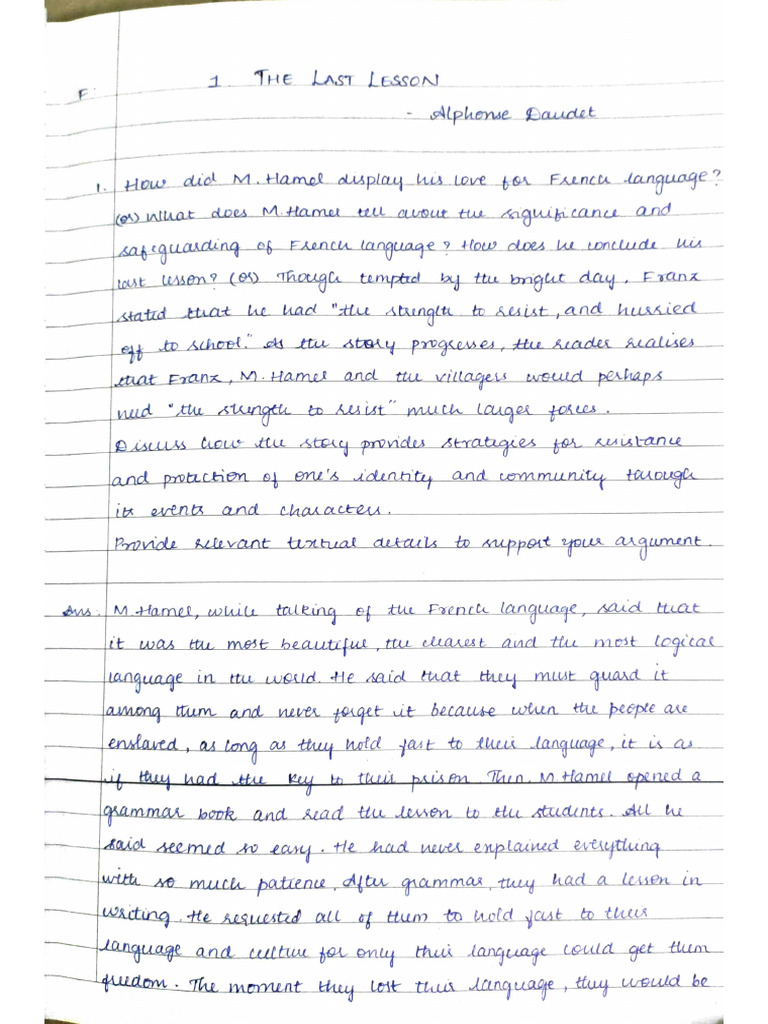 1 THE LAST LESSON
F:
- Alphonse Daudet
1. How did M. Hamel display his love for French language?
(or) What does M. Hamel tell about the significance and
safeguarding of French language? How does he conclude his
last lesson? (or) Though tempted by the bright day, Franz
stated that he had "the strength to resist, and hurried
off to school." As the story progresses, the reader realises
that Franz, M. Hamel and the villagers would perhaps
need "the strength to resist" much larger forces.
Discuss how the story provides strategies for resistance
and protection of one's identity and community through
its events and characters.
Provide relevant textual details to support your argument.
Ans: M. Hamel, while talking of the French language, said that
it was the most beautiful, the clearest and the most logical
language in the world. He said that they must guard it
among them and never forget it because when the people are
enslaved, as long as they hold fast to their language, it is as
if they had the key to their prison. Then M. Hamel opened a
grammar book and read the lesson to the students. All he
said seemed so easy. He had never explained everything
with so much patience. After grammar, they had a lesson in
writing. He requested all of them to hold fast to their
language and culture for only their language could get them
freedom. The moment they lost their language, they would be